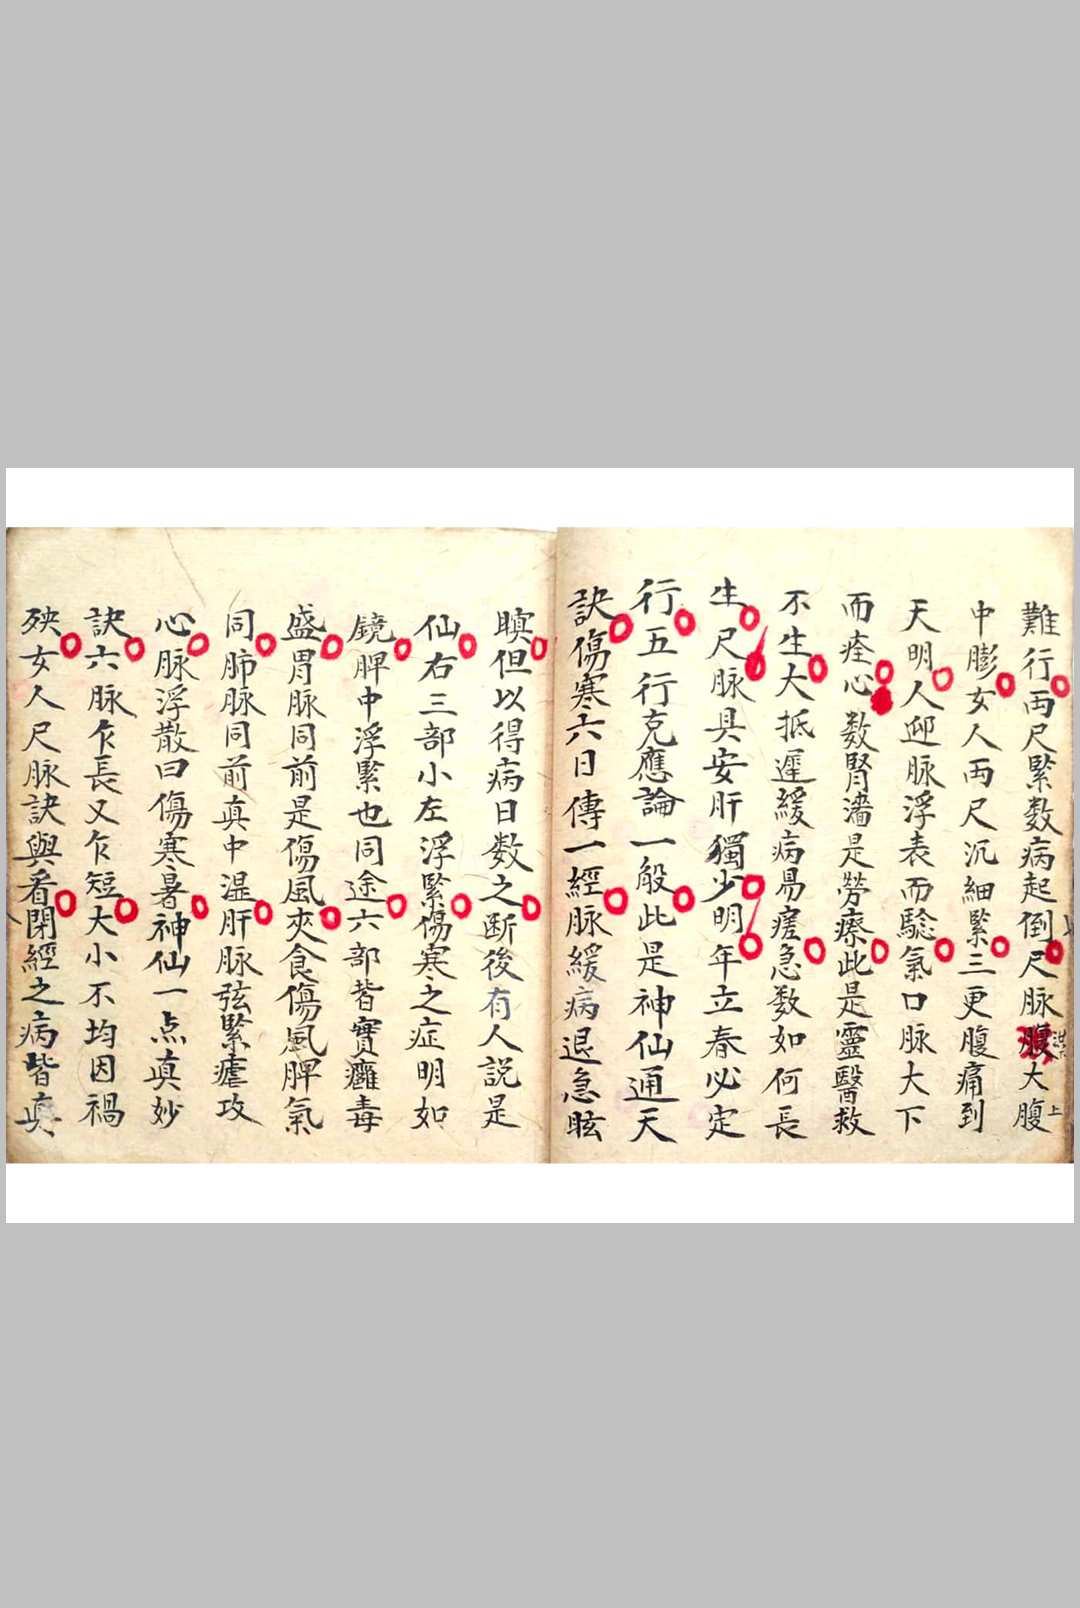 難行両尺緊数病起倒尺脉腹大腹
中膨女人両尺沉細緊三更腹痛到
天明人迎脉浮表而驗氣口脉大下
而痊心数腎濇是勞瘵此是靈醫救
不生大抵遲緩病易瘥急数如何長
生尺脉具安肝獨少明年立春必定
行五行克應論一般此是神仙通天
訣傷寒六日傳一經脉緩病退急眩
瞑但以得病日数之断後有人説是
仙右三部小左浮緊傷寒之症明如
鏡脾中浮緊也同途六部皆實癰毒
盛胃脉同前是傷風夾食傷風脾氣
同肺脉同前真中湿肝脉弦緊瘧攻
心脉浮散曰傷寒暑神仙一点真妙
訣六脉乍長又乍短大小不均因禍
殃女人尺脉訣與看閉經之病皆真